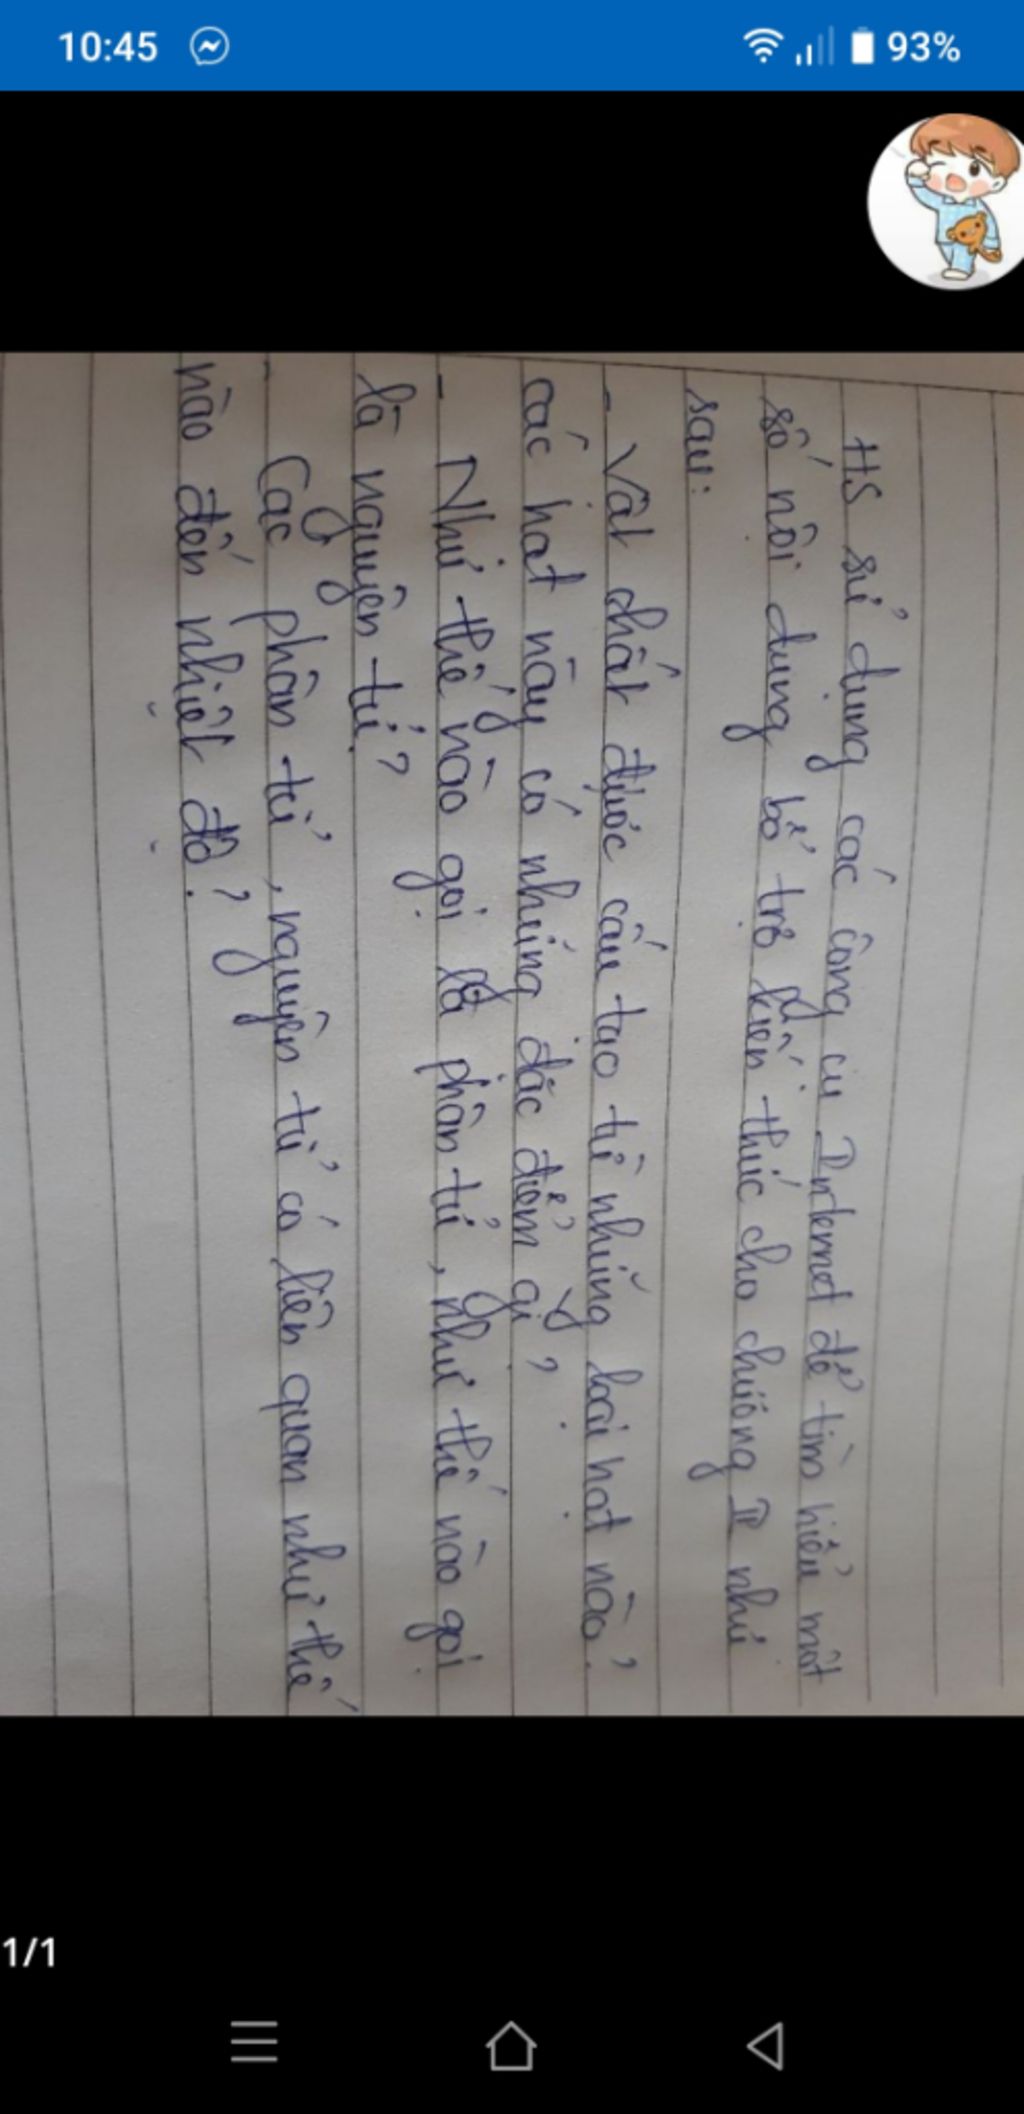 10:45
93%
HS sử dụng các công cụ Internet để tìm hiểu một
số nội dung bổ trợ kiến thức cho chương II như
sau:
- Vật chất được cấu tạo từ những loại hạt nào?
các hạt này có những đặc điểm gì?
- Như thế nào gọi là phân tử, như thế nào gọi
là nguyên tử?
- Các phân tử, nguyên tử có liên quan như thế
nào đến nhiệt độ?
1/1